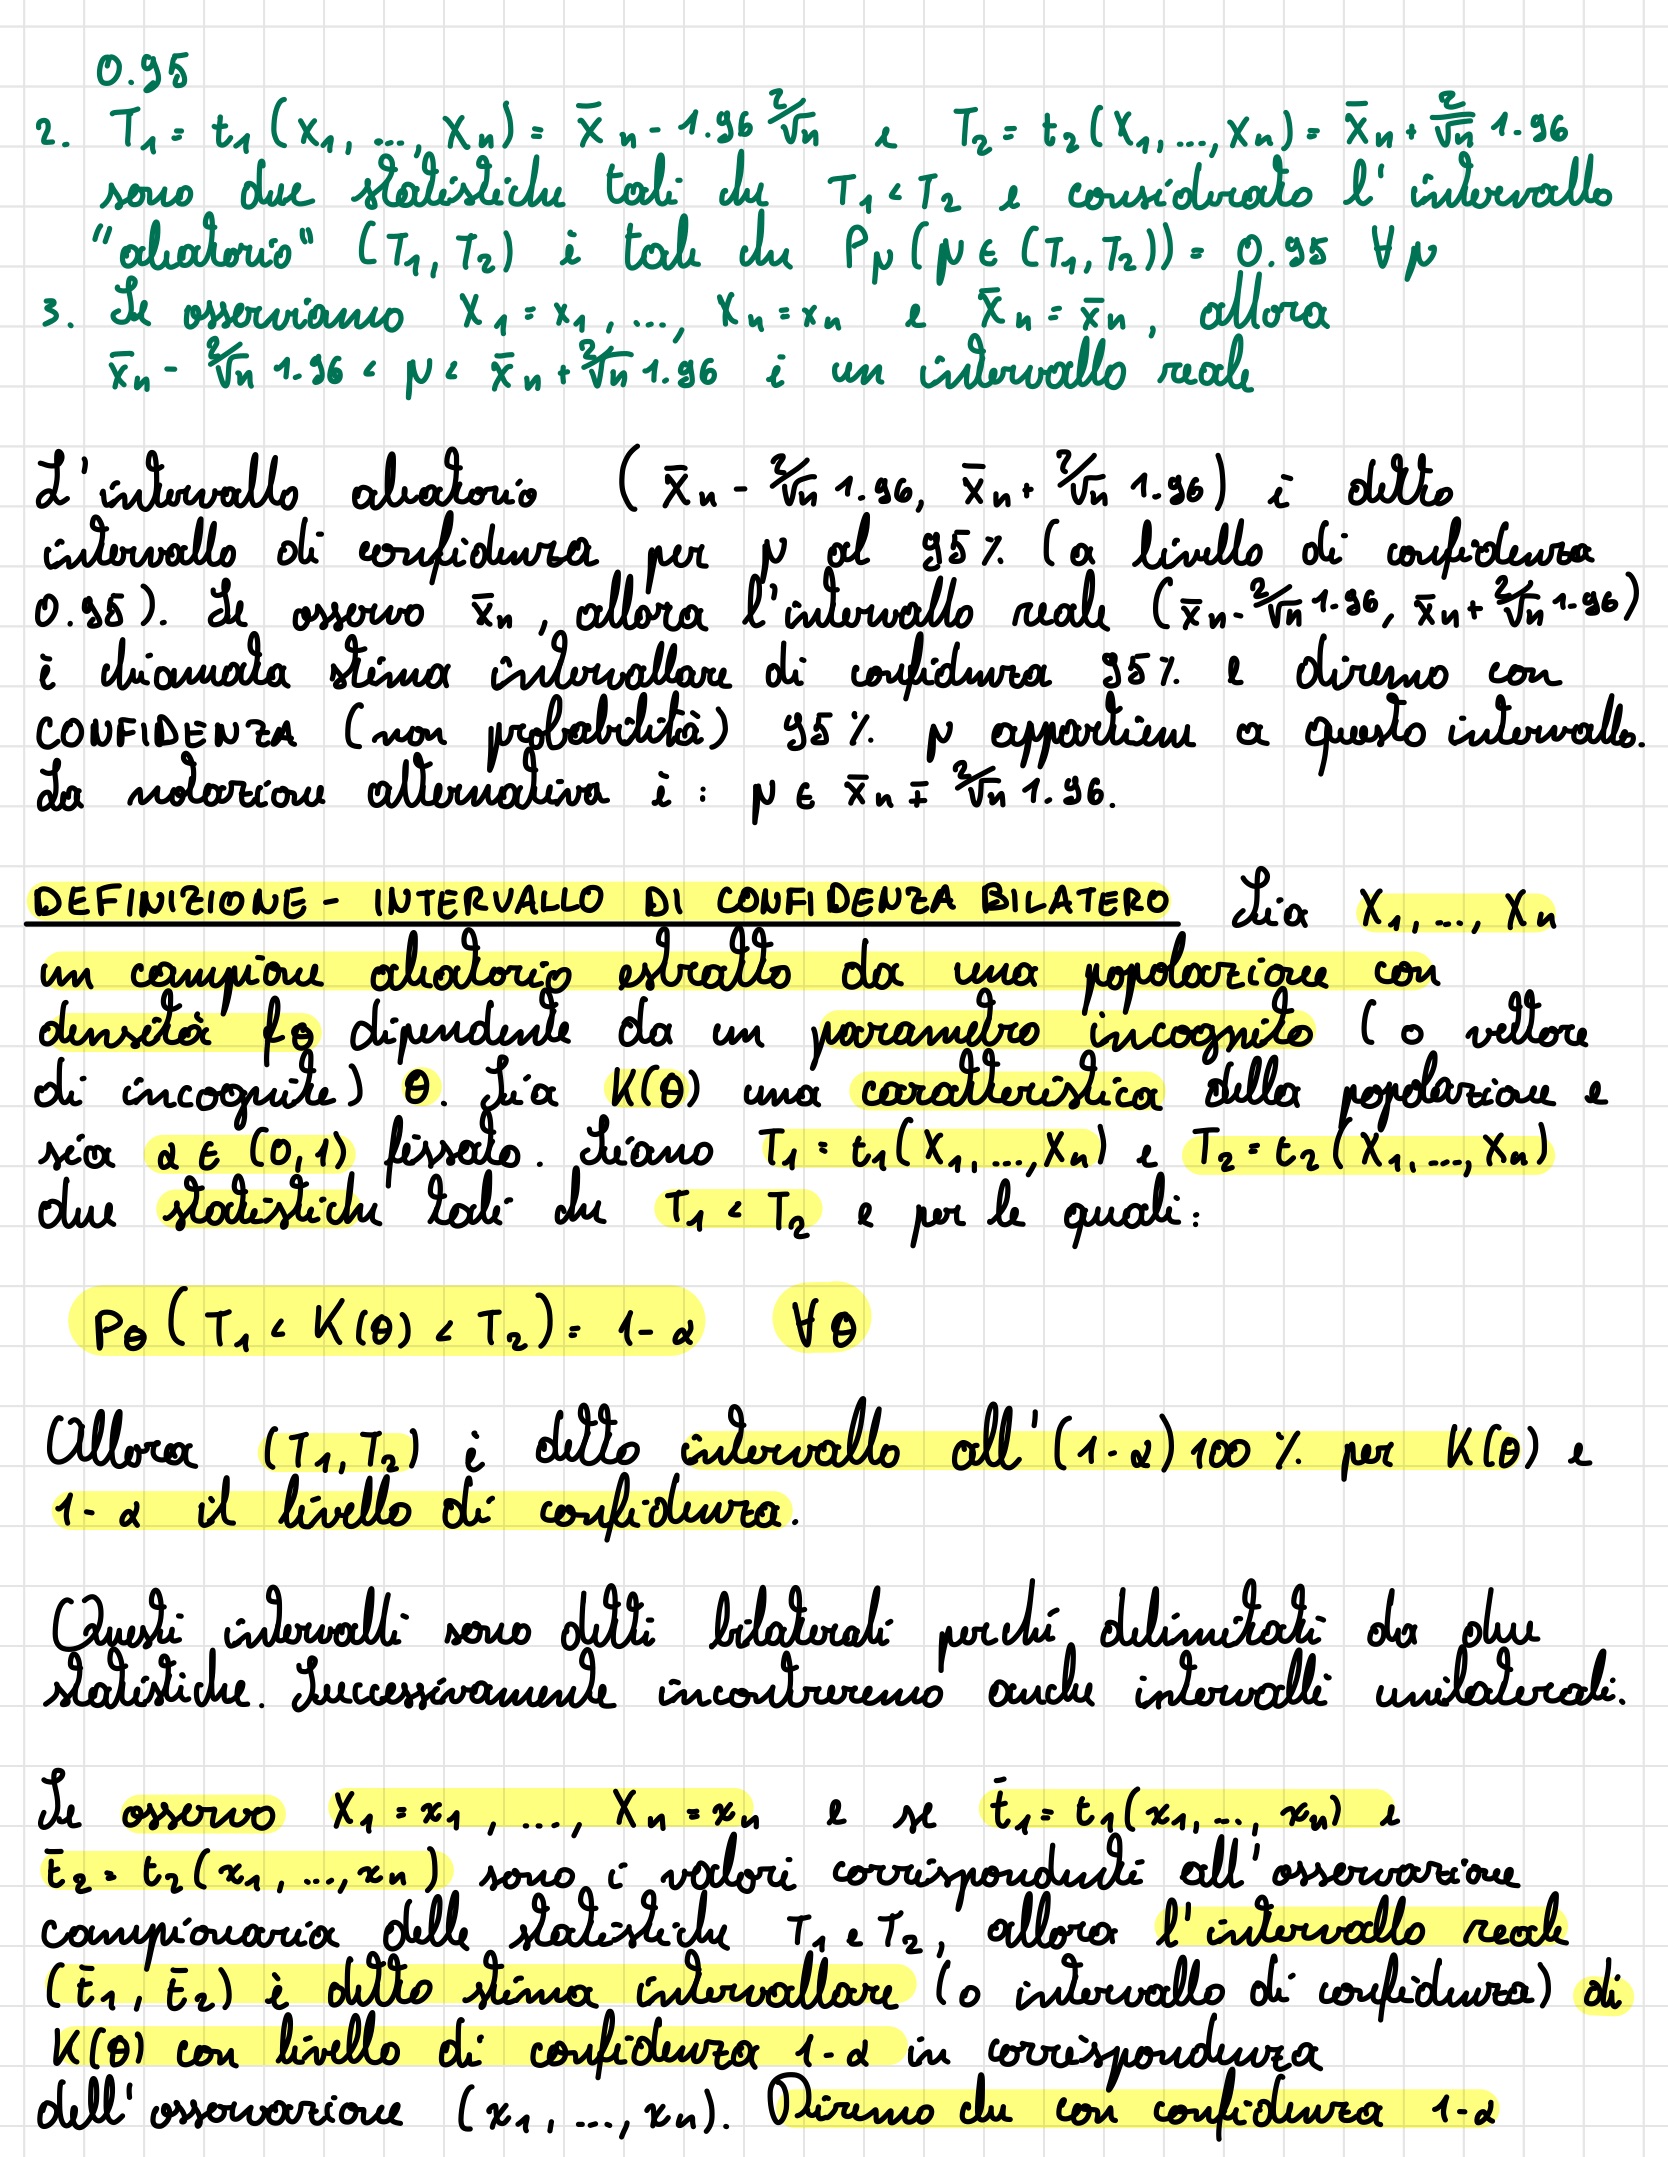 0.95
2. T₁ = t₁(X₁, ..., Xₙ) = X̄ₙ - 1.96 2/√n e T₂ = t₂(X₁, ..., Xₙ) = X̄ₙ + 2/√n 1.96
sono due statistiche tali che T₁ < T₂ e considerato l'intervallo
"aleatorio" (T₁, T₂) è tale che Pμ(μ ∈ (T₁, T₂)) = 0.95 ∀ μ
3. Se osserviamo X₁ = x₁, ..., Xₙ = xₙ e X̄ₙ = x̄ₙ, allora
x̄ₙ - 2/√n 1.96 < μ < x̄ₙ + 2/√n 1.96 è un intervallo reale
L'intervallo aleatorio (X̄ₙ - 2/√n 1.96, X̄ₙ + 2/√n 1.96) è detto
intervallo di confidenza per μ al 95% (a livello di confidenza
0.95). Se osservo x̄ₙ, allora l'intervallo reale (x̄ₙ - 2/√n 1.96, x̄ₙ + 2/√n 1.96)
è chiamata stima intervallare di confidenza 95% e diremo con
CONFIDENZA (non probabilità) 95% μ appartiene a questo intervallo.
La notazione alternativa è: μ ∈ x̄ₙ ∓ 2/√n 1.96.
DEFINIZIONE - INTERVALLO DI CONFIDENZA BILATERO Sia X₁, ..., Xₙ
un campione aleatorio estratto da una popolazione con
densità fθ dipendente da un parametro incognito (o vettore
di incognite) θ. Sia K(θ) una caratteristica della popolazione e
sia α ∈ (0,1) fissato. Siano T₁ = t₁(X₁, ..., Xₙ) e T₂ = t₂(X₁, ..., Xₙ)
due statistiche tali che T₁ < T₂ e per le quali:
Pθ(T₁ < K(θ) < T₂) = 1-α ∀θ
Allora (T₁, T₂) è detto intervallo all'(1-α)100% per K(θ) e
1-α il livello di confidenza.
Questi intervalli sono detti bilaterali perché delimitati da due
statistiche. Successivamente incontreremo anche intervalli unilaterali.
Se osservo X₁ = x₁, ..., Xₙ = xₙ e se t̄₁ = t₁(x₁, ..., xₙ) e
t̄₂ = t₂(x₁, ..., xₙ) sono i valori corrispondenti all'osservazione
campionaria delle statistiche T₁ e T₂, allora l'intervallo reale
(t̄₁, t̄₂) è detto stima intervallare (o intervallo di confidenza) di
K(θ) con livello di confidenza 1-α in corrispondenza
dell'osservazione (x₁, ..., xₙ). Diremo che con confidenza 1-α